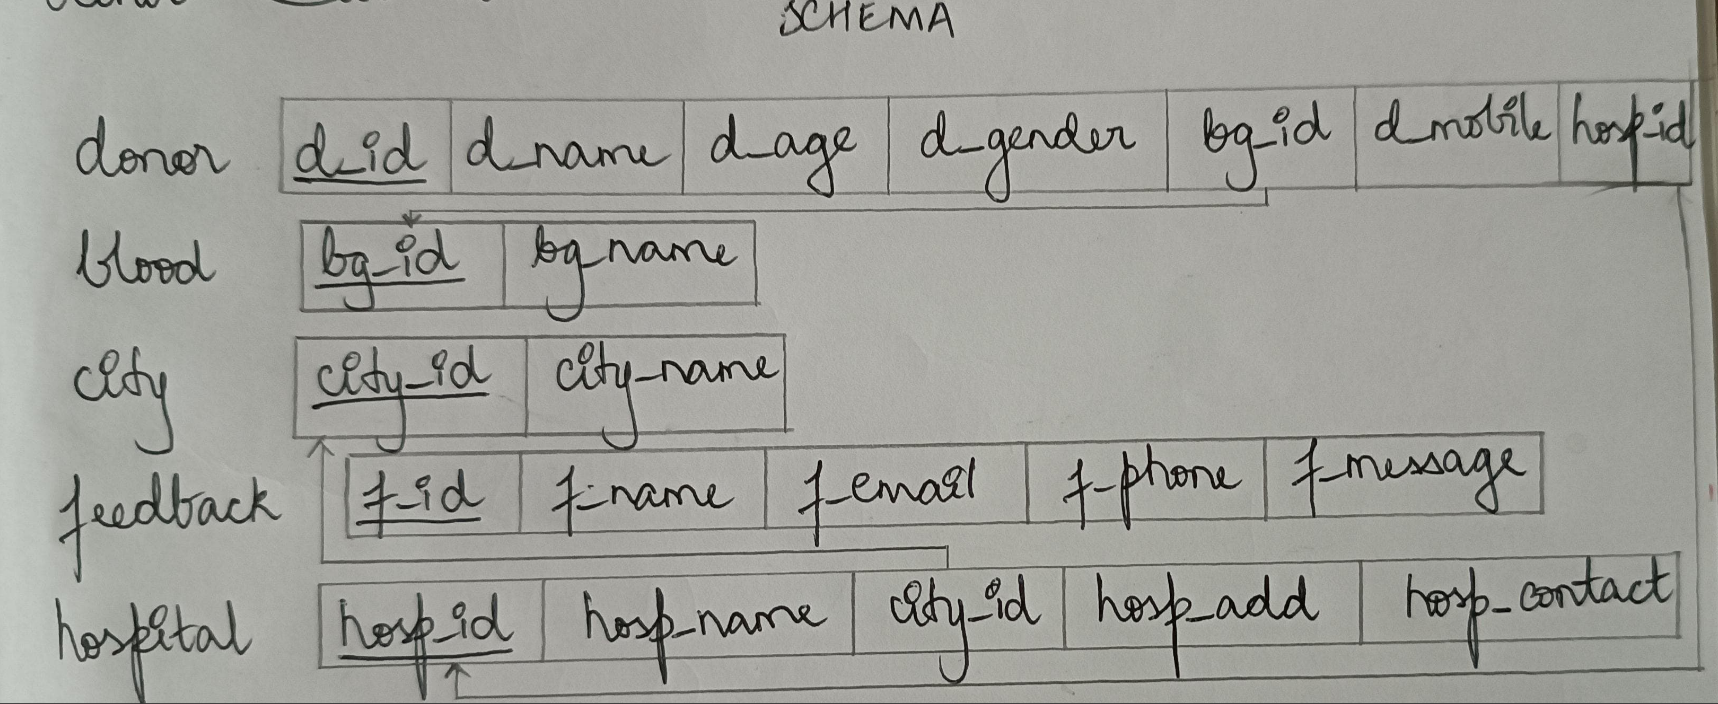 SCHEMA
donor d_id d_name d_age d_gender bg_id d_mobile hosp_id
blood bg_id bg_name
city city_id city_name
feedback f_id f_name f_email f_phone f_message
hospital hosp_id hosp_name city_id hosp_add hosp_contact